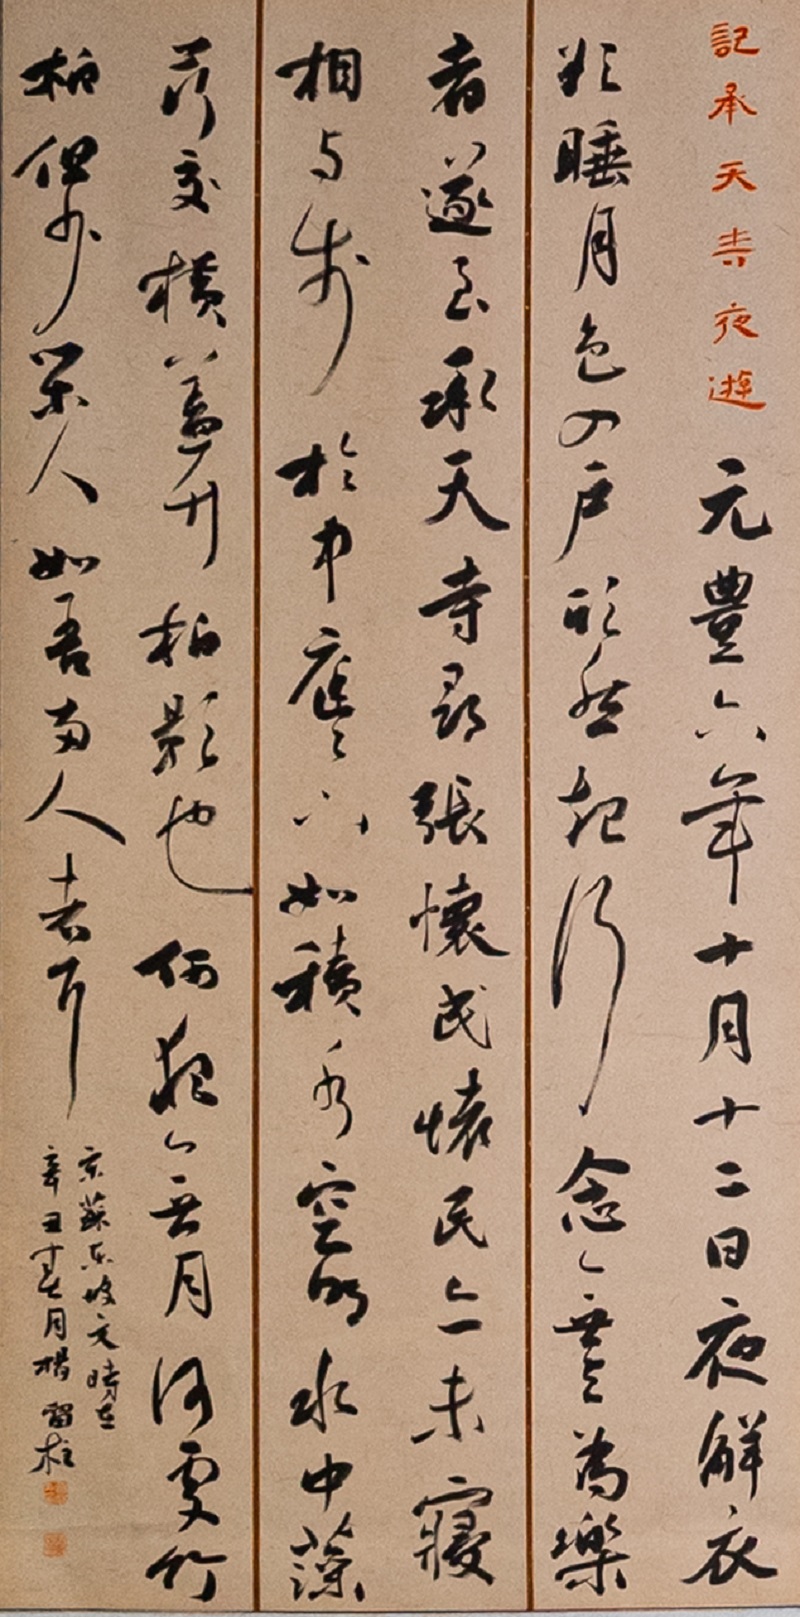 記承天寺夜遊 元豐六年十月十二日夜解衣
欲睡月色入戶欣然起行念無與為樂
者遂至承天寺尋張懷民懷民亦未寢
相与步於中庭〻下如積水空明水中藻
荇交橫蓋竹柏影也何夜無月何處竹
柏但少閑人如吾兩人者耳
宋蘇東坡文時在
辛丑春月楊留柱